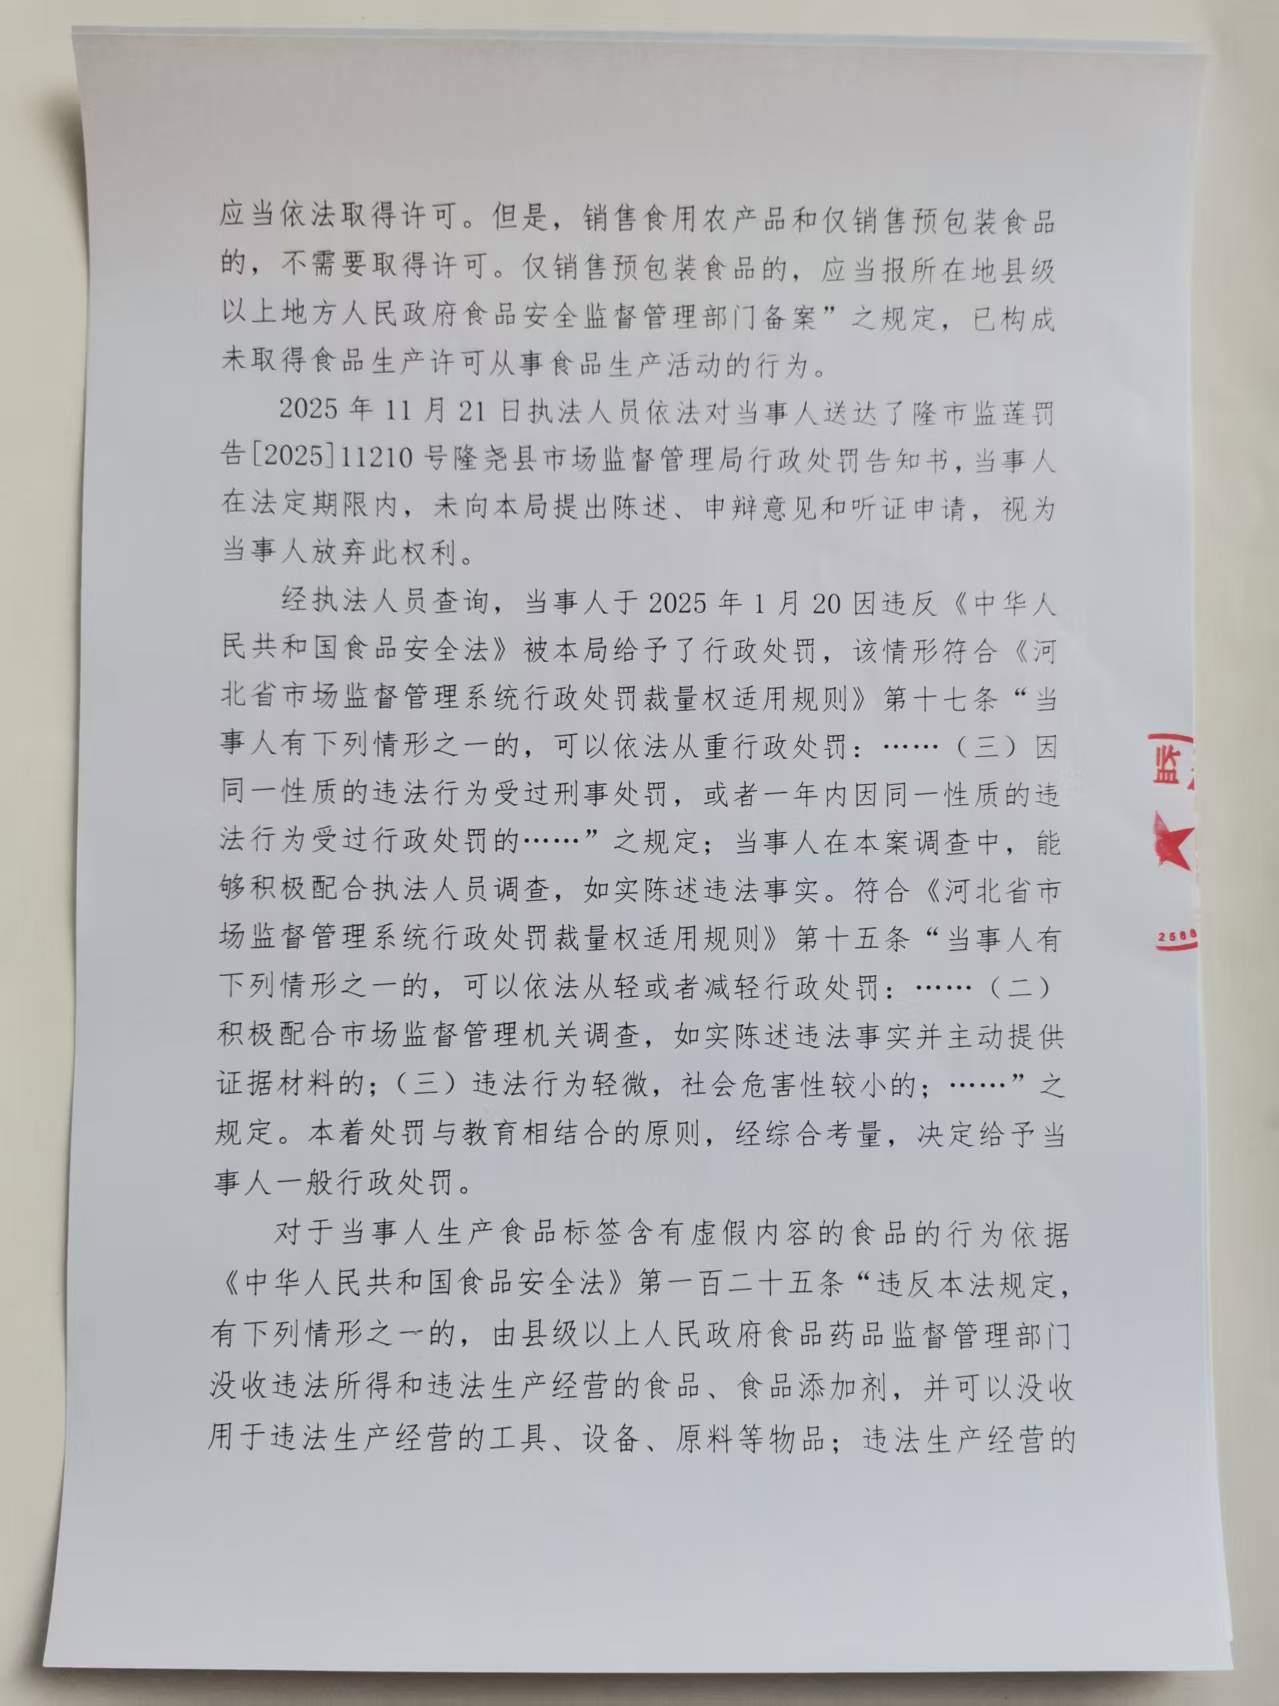 应当依法取得许可。但是，销售食用农产品和仅销售预包装食品
的，不需要取得许可。仅销售预包装食品的，应当报所在地县级
以上地方人民政府食品安全监督管理部门备案”之规定，已构成
未取得食品生产许可从事食品生产活动的行为。
2025 年 11 月 21 日执法人员依法对当事人送达了隆市监莲罚
告[2025]11210 号隆尧县市场监督管理局行政处罚告知书，当事人
在法定期限内，未向本局提出陈述、申辩意见和听证申请，视为
当事人放弃此权利。
经执法人员查询，当事人于 2025 年 1 月 20 因违反《中华人
民共和国食品安全法》被本局给予了行政处罚，该情形符合《河
北省市场监督管理系统行政处罚裁量权适用规则》第十七条“当
事人有下列情形之一的，可以依法从重行政处罚：……（三）因
同一性质的违法行为受过刑事处罚，或者一年内因同一性质的违
法行为受过行政处罚的……”之规定；当事人在本案调查中，能
够积极配合执法人员调查，如实陈述违法事实。符合《河北省市
场监督管理系统行政处罚裁量权适用规则》第十五条“当事人有
下列情形之一的，可以依法从轻或者减轻行政处罚：……（二）
积极配合市场监督管理机关调查，如实陈述违法事实并主动提供
证据材料的；（三）违法行为轻微，社会危害性较小的；……”之
规定。本着处罚与教育相结合的原则，经综合考量，决定给予当
事人一般行政处罚。
对于当事人生产食品标签含有虚假内容的食品的行为依据
《中华人民共和国食品安全法》第一百二十五条“违反本法规定，
有下列情形之一的，由县级以上人民政府食品药品监督管理部门
没收违法所得和违法生产经营的食品、食品添加剂，并可以没收
用于违法生产经营的工具、设备、原料等物品；违法生产经营的
监
2588